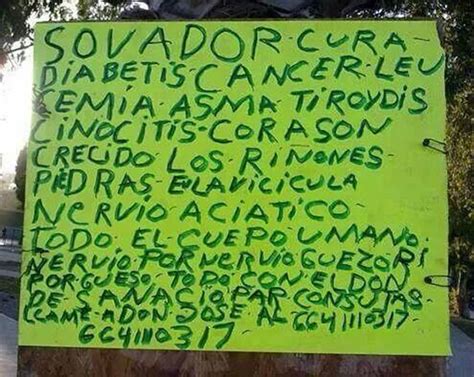 SOVADOR-CURA-
DIABETIS-CANCER-LEU
CEMIA-ASMA-TIROYDIS
CINOCITIS-CORASON
CRECIDO LOS RINONES-
PIEDRAS-ENLAVICICULA
NERVIO ACIATICO-
TODO-EL CUEPO UMANO-
NERVIO-POR NERVIO GUEZO RI
POR GUESO-TODO CON EL DON
DE SANACIO PAR CONSUTAS
LLAME-ADON JOSE AL 6641110317
6641110317